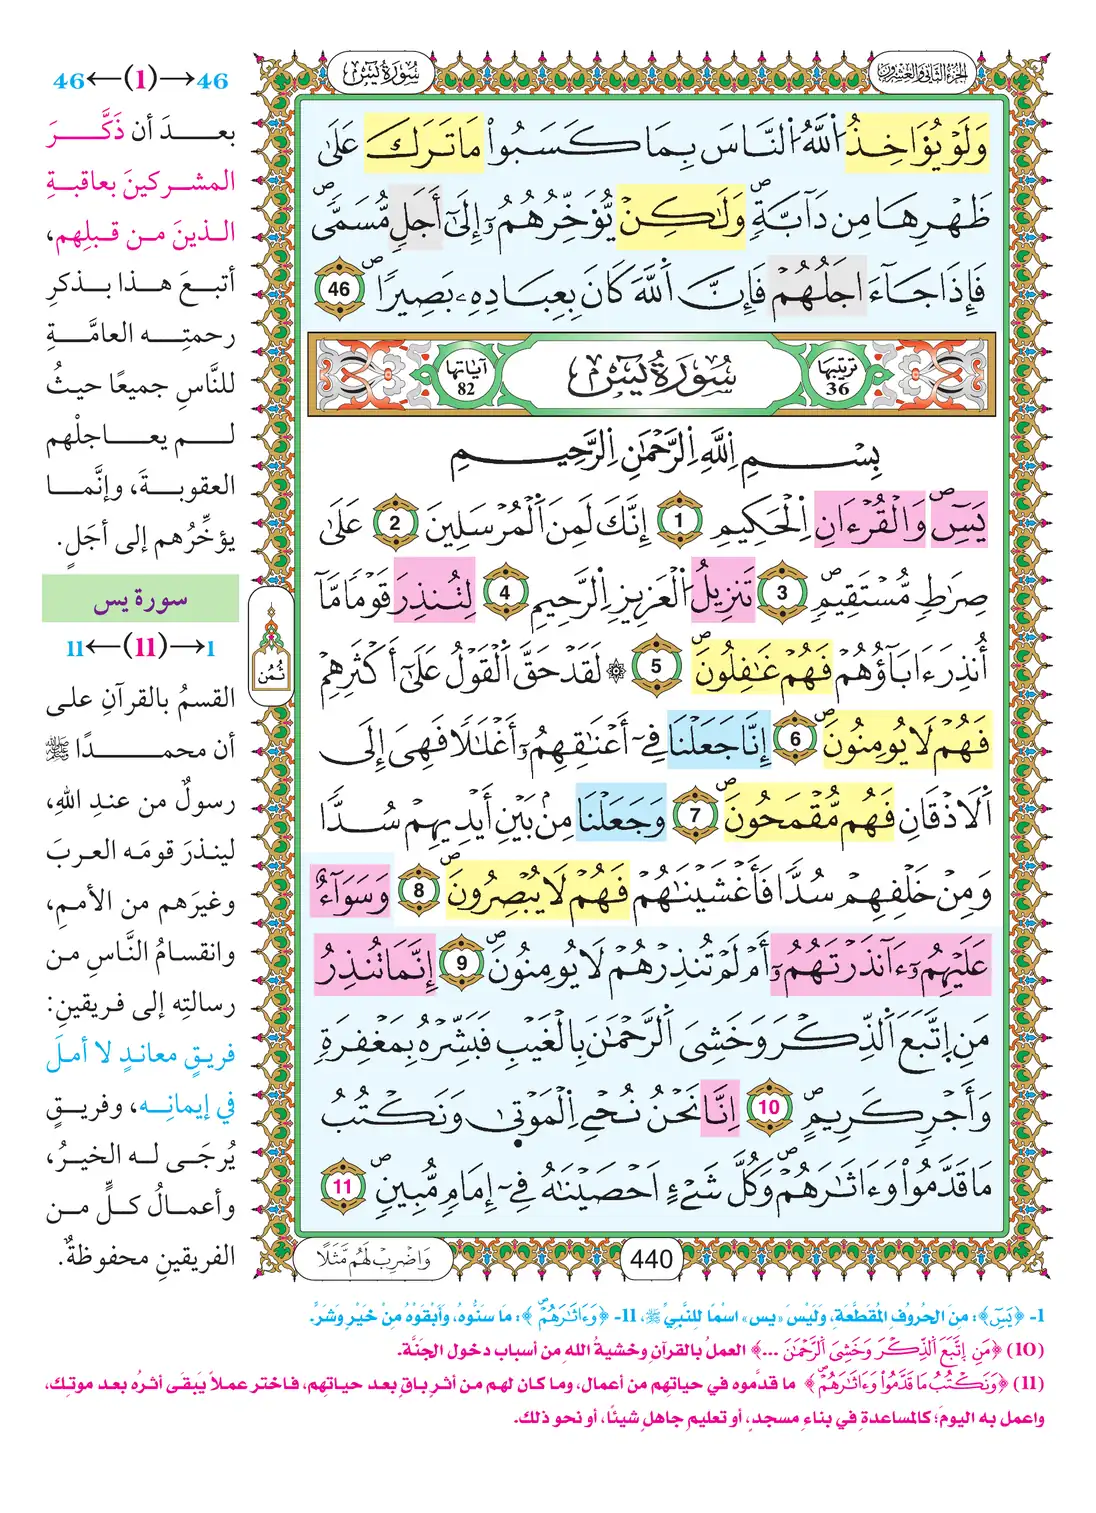 الجزء الثاني والعشرون
سُورَةُ يسٓ
وَلَوْ يُؤَاخِذُ اُ۬للَّهُ اُ۬لنَّاسَ بِمَا كَسَبُواْ مَا تَرَكَ عَلَىٰ
ظَهْرِهَا مِن دَآبَّةٖ وَلَٰكِنْ يُّؤَخِّرُهُمُۥٓ إِلَىٰٓ أَجَلٖ مُّسَمّىٗ
فَإِذَا جَآءَ اجَلُهُمْ فَإِنَّ اَ۬للَّهَ كَانَ بِعِبَادِهِۦ بَصِيرٗا 46
ترتيبها 36
سُورَةُ يسٓ
آياتها 82
بِسْمِ اِ۬للَّهِ اِ۬لرَّحْمَٰنِ اِ۬لرَّحِيمِ
يَسٓ وَالْقُرْءَانِ اِ۬لْحَكِيمِ 1 إِنَّكَ لَمِنَ اَ۬لْمُرْسَلِينَ 2 عَلَىٰ
صِرَٰطٖ مُّسْتَقِيمٖ 3 تَنزِيلُ اُ۬لْعَزِيزِ اِ۬لرَّحِيمِ 4 لِتُنذِرَ قَوْماٗ مَّآ
أُنذِرَ ءَابَآؤُهُمْ فَهُمْ غَٰفِلُونَ 5 ۞ لَقَدْ حَقَّ اَ۬لْقَوْلُ عَلَىٰٓ أَكْثَرِهِمْ
فَهُمْ لَا يُومِنُونَ 6 إِنَّا جَعَلْنَا فِےٓ أَعْنَٰقِهِمُۥٓ أَغْلَٰلاٗ فَهِيَ إِلَى
اَ۬لَاذْقَانِ فَهُم مُّقْمَحُونَ 7 وَجَعَلْنَا مِنۢ بَيْنِ أَيْدِيهِمْ سُدّاٗ
وَمِنْ خَلْفِهِمْ سُدّاٗ فَأَغْشَيْنَٰهُمْ فَهُمْ لَا يُبْصِرُونَ 8 وَسَوَآءٌ
عَلَيْهِمُۥٓ ءَآنذَرْتَهُمُۥٓ أَمْ لَمْ تُنذِرْهُمْ لَا يُومِنُونَ 9 إِنَّمَا تُنذِرُ
مَنِ اِ۪تَّبَعَ اَ۬لذِّكْرَ وَخَشِيَ اَ۬لرَّحْمَٰنَ بِالْغَيْبِ فَبَشِّرْهُ بِمَغْفِرَةٖ
وَأَجْرٖ كَرِيمٍ 10 اِنَّا نَحْنُ نُحْيِ اِ۬لْمَوْتَىٰ وَنَكْتُبُ
مَا قَدَّمُواْ وَءَاثَٰرَهُمْ وَكُلَّ شَےْءٍ اَحْصَيْنَٰهُ فِےٓ إِمَامٖ مُّبِينٖ 11
وَاضْرِبْ لَهُم مَّثَلًا
440
ثُمُن
46←(1)→46
بعدَ أن ذَكَّرَ
المشركينَ بعاقبةِ
الذينَ من قبلِهم،
أتبعَ هذا بذكرِ
رحمتِه العامَّةِ
للنَّاسِ جميعًا حيثُ
لم يعاجلْهم
العقوبةَ، وإنَّما
يؤخِّرُهم إلى أجَلٍ.
سورة يس
11←(11)→1
القسمُ بالقرآنِ على
أن محمدًا ﷺ
رسولٌ من عندِ اللهِ،
لينذرَ قومَه العربَ
وغيرَهم من الأممِ،
وانقسامُ النَّاسِ من
رسالتِه إلى فريقينِ:
فريقٍ معاندٍ لا أملَ
في إيمانِه، وفريقٍ
يُرجَى له الخيرُ،
وأعمالُ كلٍّ من
الفريقينِ محفوظةٌ.
1- ﴿يَسٓ﴾: مِنَ الحُرُوفِ المُقَطَّعَةِ، وَلَيْسَ «يس» اسْمًا لِلنَّبِيِّ ﷺ، 11- ﴿وَءَاثَٰرَهُمْ﴾: مَا سَنُّوهُ، وَأَبْقَوْهُ مِنْ خَيْرٍ وَشَرٍّ.
(10) ﴿مَنِ اِ۪تَّبَعَ اَ۬لذِّكْرَ وَخَشِيَ اَ۬لرَّحْمَٰنَ ...﴾ العملُ بالقرآنِ وخشيةُ اللهِ من أسبابِ دخولِ الجنَّة.
(11) ﴿وَنَكْتُبُ مَا قَدَّمُواْ وَءَاثَٰرَهُمْ﴾ ما قدَّموه في حياتِهم من أعمال، وما كان لهم من أثرٍ باقٍ بعد حياتِهم، فاختر عملاً يَبقَى أثرُه بعد موتِك،
واعمل به اليومَ؛ كالمساعدةِ في بناءِ مسجدٍ، أو تعليمِ جاهلٍ شيئًا، أو نحو ذلك.